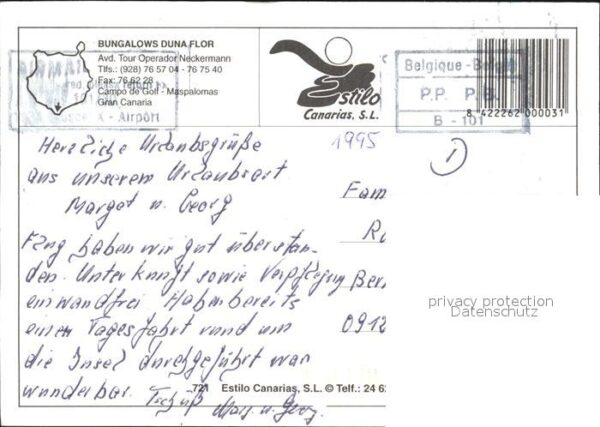 BUNGALOWS DUNA FLOR
Avd. Tour Operador Neckermann
Tlfs.: (928) 76 57 04 - 76 75 40
Fax: 76 62 28
Campo de Golf - Maspalomas
Gran Canaria
X - Airport
Estilo
Canarias, S.L.
Belgique - Belg
P.P. P.B.
B - 101
8 422262 000031
1995
1
Herzliche Urlaubsgrüße
aus unserem Urlaubsort
Margot u. Georg
Flug haben wir gut überstan-
den. Unterkunft sowie Verpflegung
einwandfrei Haben bereits
einen Tagesfahrt rund um
die Insel durchgeführt war
wunderbar. Tschüß
Marg. u. Georg.
Fam
Ber
0912
721 Estilo Canarias, S.L. © Telf.: 24 6
privacy protection
Datenschutz